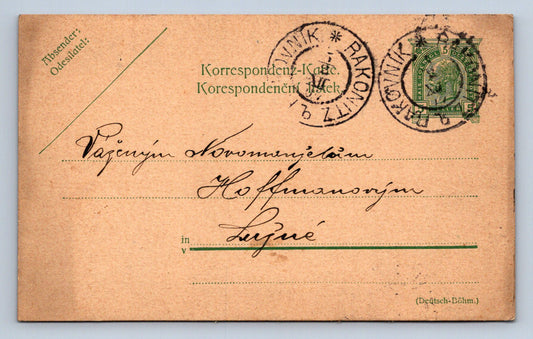 Absender:
Odesílatel:
Korrespondenz-Karte.
Korespondenční lístek.
RAKOVNÍK * RAKONITZ
RAKOVNÍK * RAKONITZ
5
Váženým Novomanželům
Hoffmanovým
in
v
(Deutsch-Böhm.)